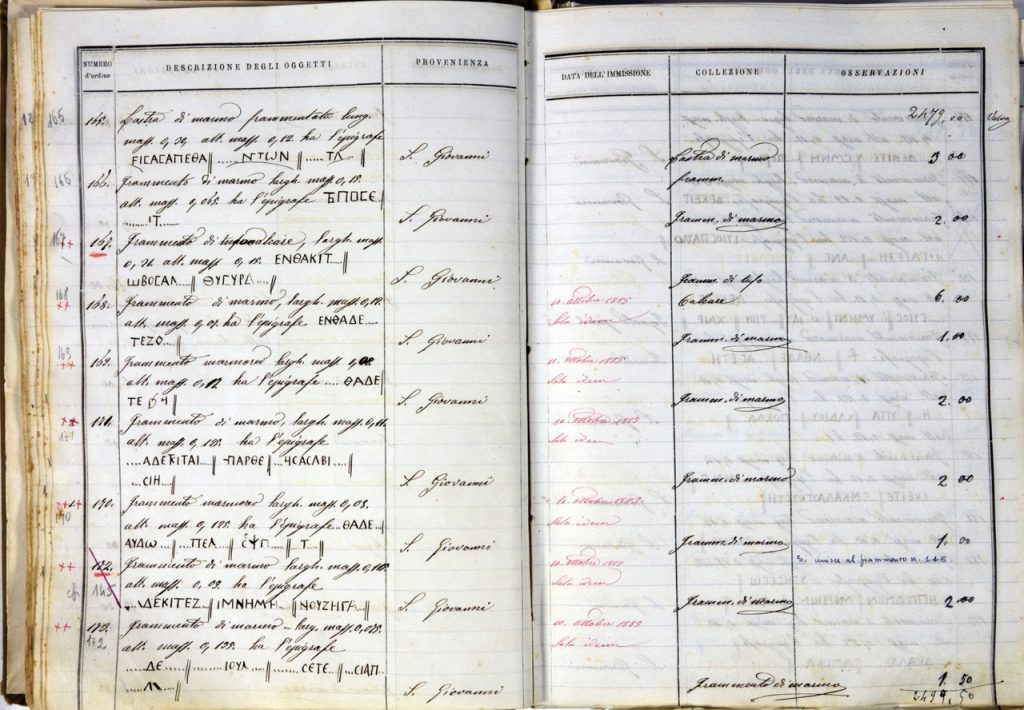 NUMERO d'ordine
DESCRIZIONE DEGLI OGGETTI
PROVENIENZA
165. Lastra di marmo frammentata lung.
mass. 0, alt. mass. 0,12. ha l'epigrafe
ΕΙCΑCΑΠΕΘΑ ||.....ΝΤΩΝ ||.....ΤΛ....
S. Giovanni
166. Frammento di marmo largh. mass. 0,15.
alt. mass. 0,065. ha l'epigrafe ΠΟCΕ
....ΙΤ....
S. Giovanni
167. Frammento di calcare, largh. mass.
0,21 alt. mass. 0,15. ΕΝΘΑΚΙΤ....||
ωΒΟCΑΛ....|| ΘΥΓΥΡΑ....||
S. Giovanni
168. Frammento di marmo, largh. mass. 0,12.
alt. mass. 0,07. ha l'epigrafe ΕΝΘΑΔΕ....
ΤΕΖΟ....||
S. Giovanni
169. Frammento marmoreo largh. mass. 0,08
alt. mass. 0,12 ha l'epigrafe ....ΘΑΔΕ
S. Giovanni
171. Frammento di marmo, largh. mass. 0,11.
alt. mass. 0,125. ha l'epigrafe
....ΑΔΕΚΙΤΑΙ....|| -ΠΑΡΘΕ ||
....CΙΗ....||
S. Giovanni
170. Frammento marmoreo largh. mass. 0,08.
alt. mass. 0,125. ha l'epigrafe..ΘΑΔΕ
ΑΥΔω....||....ΠΕΛ || ....Τ....||
S. Giovanni
172. Frammento di marmo largh. mass.
alt. mass. 0,09. ha l'epigrafe
...ΔΕΚΙΤΕΖ....||ΙΜΝΗΜΗ....||ΝΟΥΖΗΓΑ....||
S. Giovanni
173. Frammento di marmo - larg. mass. 0,085.
alt. mass. 0,135. ha l'epigrafe
.....ΔΕ....||....ΙΟΥΛ....||....CΕΤΕ....||CΙΑΠ....
S. Giovanni
DATA DELL'IMMISSIONE
COLLEZIONE
OSSERVAZIONI
2479,00
Lastra di marmo 3 00
framm.
Framm. di marmo 2.00
Framm. di tufo
Calcare 6. 00
10. ottobre 1885
Sala idem
Framm. di marmo 1.00
10. ottobre 1885
Sala idem
Framm. di marmo 2. 00
10. ottobre 1885
Sala idem
Framm. di marmo 2 00
10. ottobre 1885
Sala idem
Framm. di marmo 1. 00
S. unisce al frammento n. 145.
10. ottobre 1885
Sala idem
Framm. di marmo 2 00
10. ottobre 1885
Sala idem
Frammento di marmo 1. 50
2499,50